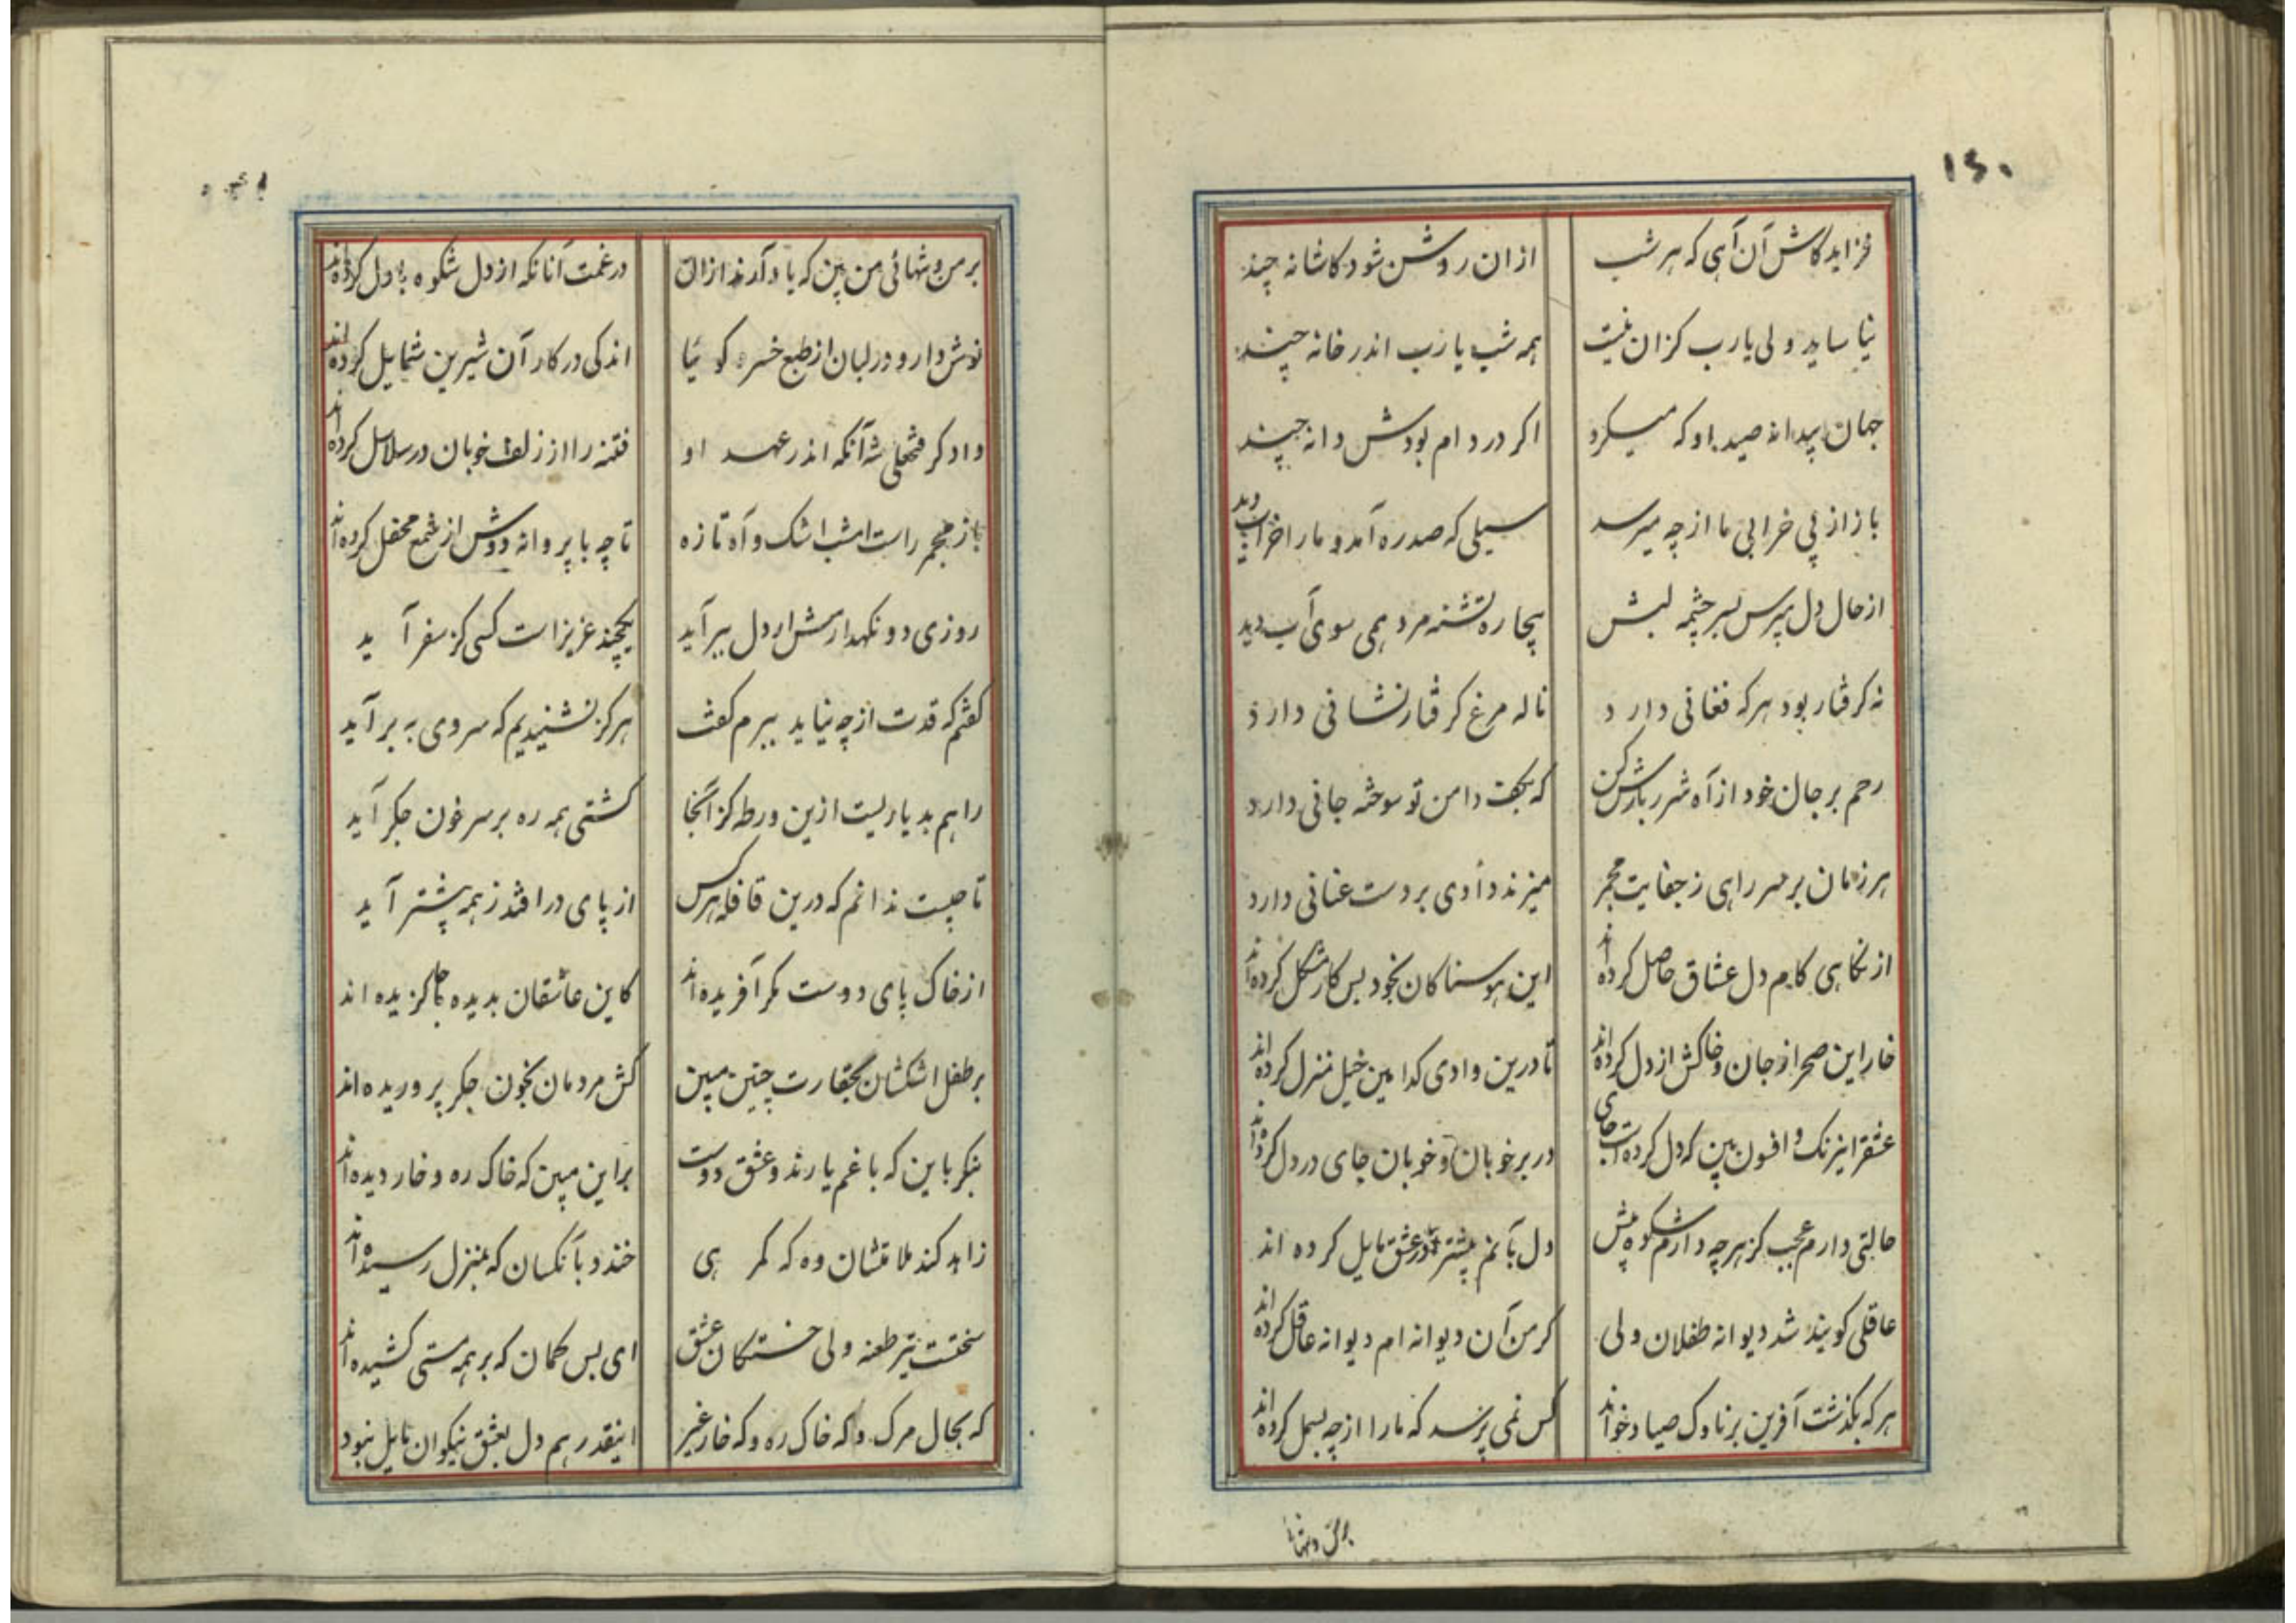 ۱۴۰
فزاید کاش آن آهی که هر شب ازان روشن شود کاشانه چند
نیاساید ولی یارب کزان نیست همه شب یارب اندر خانه چند
جهان پیدانه صید او که میکرد اکر در دام بودش دانه چند
باز از پی خرابی ما از چه میرسد سیلی که صد ره آمد و ما را خراب دید
از حال دل مپرس بسر چشمه لبش بیچاره تشنه مرد همی سوی آب دید
نه کرفتار بود هر که فغانی دارد ناله مرغ کرفتار نشانی دارد
رحم بر جان خود از آه شرر بارش کن که بکف دامن تو سوخته جانی دارد
هر زمان بر سر راهی ز جفایت مجمر میزند دادی بر دست عنانی دارد
از نکاهی کام دل عشاق حاصل کرده اند این هوسناکان بخود بس کار مشکل کرده اند
خار این صحرا ز جان و خاکش از دل کرده اند تا درین وادی کدامین خیل منزل کرده اند
عشق را نیرنک و افسون بین که دل کرده است جای در بر خوبان و خوبان جای در دل کرده اند
حالتی دارم عجب کز هر چه دارم شکوه پیش دل بآنم پیشتر در عشق مایل کرده اند
عاقلی کویند شد دیوانه طفلان ولی کر من آن دیوانه ام دیوانه عاقل کرده اند
هر که بکذشت آفرین بر ناوک صیاد خواند کس نمی پرسد که ما را از چه بسمل کرده اند
بر من و تنها
بر من و تنهائی من بین که یاد آرند ازان در غمت آنانکه از دل شکوه با دل کرده اند
نوش دارو در لبان از طبع خسرو کوئیا اندکی در کار آن شیرین شمایل کرده اند
دادکر فتحعلی شه آنکه اندر عهد او فتنه را از زلف خوبان در سلاسل کرده اند
باز مجمر راست امشب اشک و آه تازه تا چه با پروانه دوش از شمع محفل کرده اند
روزی دو نکهدارمش ار دل ببر آید یکچند عزیز است کسی کز سفر آید
کفتم که قدت از چه نیاید ببرم کفت هرکز نشنیدیم که سروی به بر آید
راهم بدیاریست ازین ورطه کز آنجا کشتی همه ره بر سر خون جکر آید
تا چیست ندانم که درین قافله هر کس از پای در افتد ز همه پیشتر آید
از خاک پای دوست مکر آفریده اند کاین عاشقان بدیده جا کزیده اند
بر طفل اشکشان بحقارت چنین مبین کش مردمان بخون جکر پروریده اند
بنکر باین که با غم یارند و عشق دوست بر این مبین که خاک ره و خار دیده اند
زاهد کند ملامتشان وه که کمرهی خندد بآنکسان که بمنزل رسیده اند
سختست تیر طعنه ولی خستکان عشق ای بس کمان که بر همه سستی کشیده اند
که بحال مرک و که خاک ره و که خار غیر اینقدر هم دل بعشق نیکوان مایل نبود